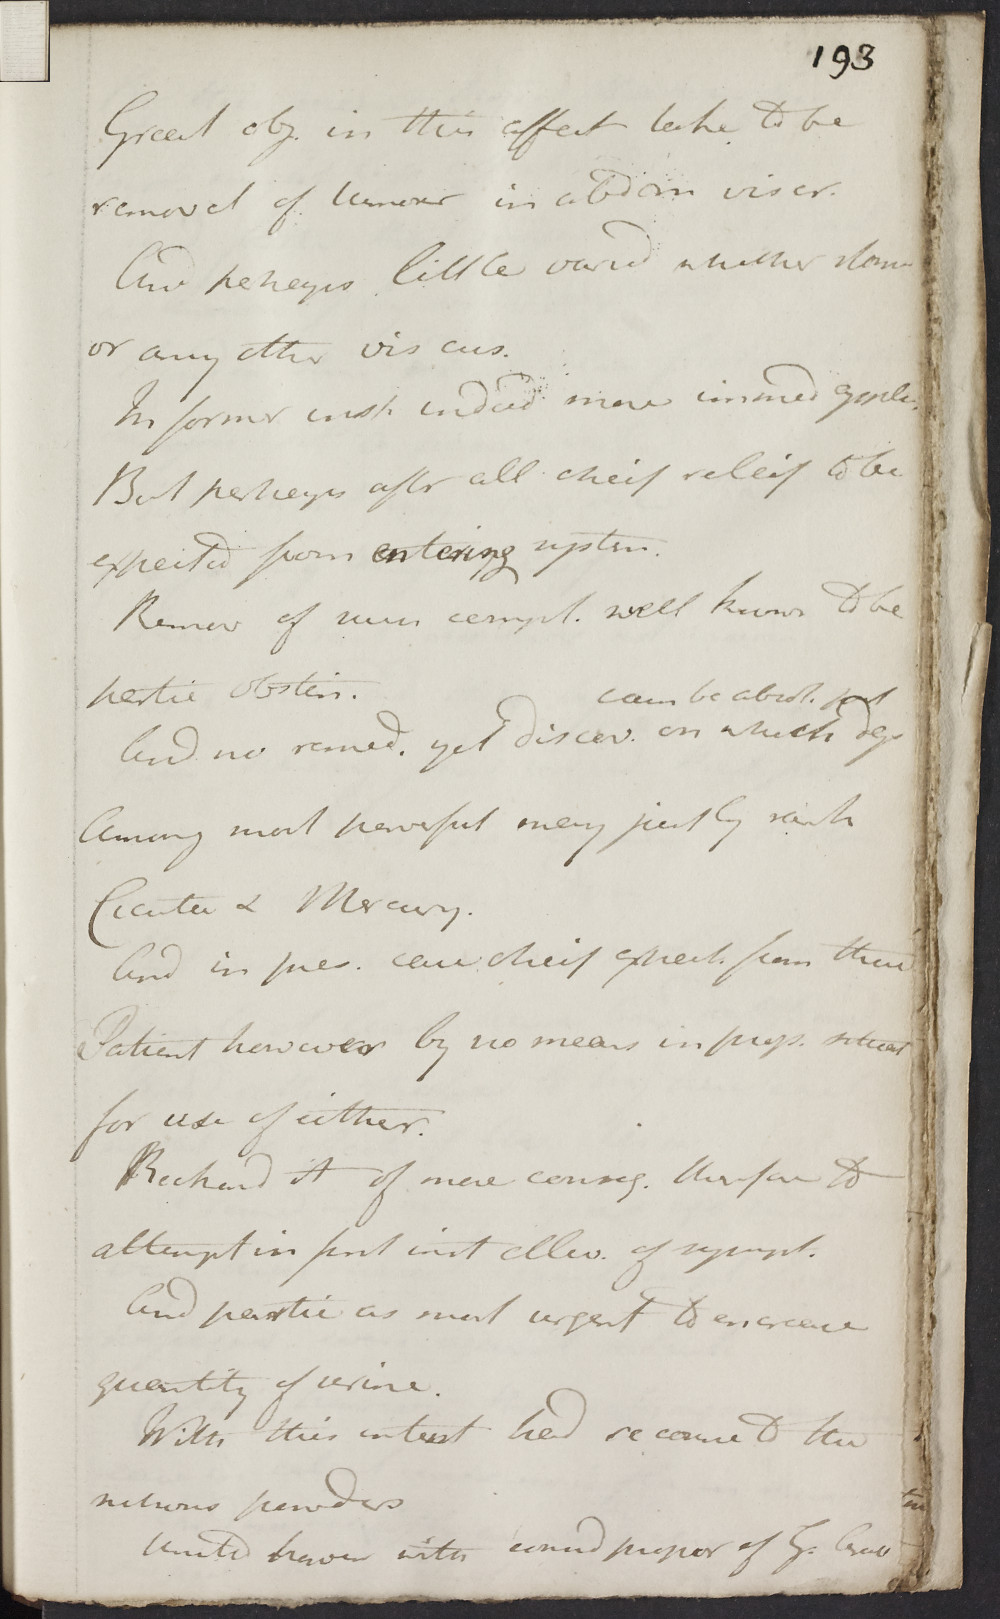 193
Great obj. in this affect take to be
removal of tumour in abdom viscer.
And perhaps little varied whether stom
or any other viscus.
In former inst. indeed more immed
But perhaps aftr all cheif releif to be
expected from entering system.
Remov of such compl. well known to be
partic obstin.
can be absol. put
And no remed. yet discov. on which dep
Among most powerful may justly rank
Cicuta & Mercury.
And in pres. case cheif expect. from these
Patient however by no means in prop. situat
for use of either.
Reckond it of more conseq. therefore to
attempt in first inst allev. of sympt.
And partic as most urgent to encrease
quantity of urine.
With this intent had recourse to the
nitrous powders
United howev with considproper of G. Arab